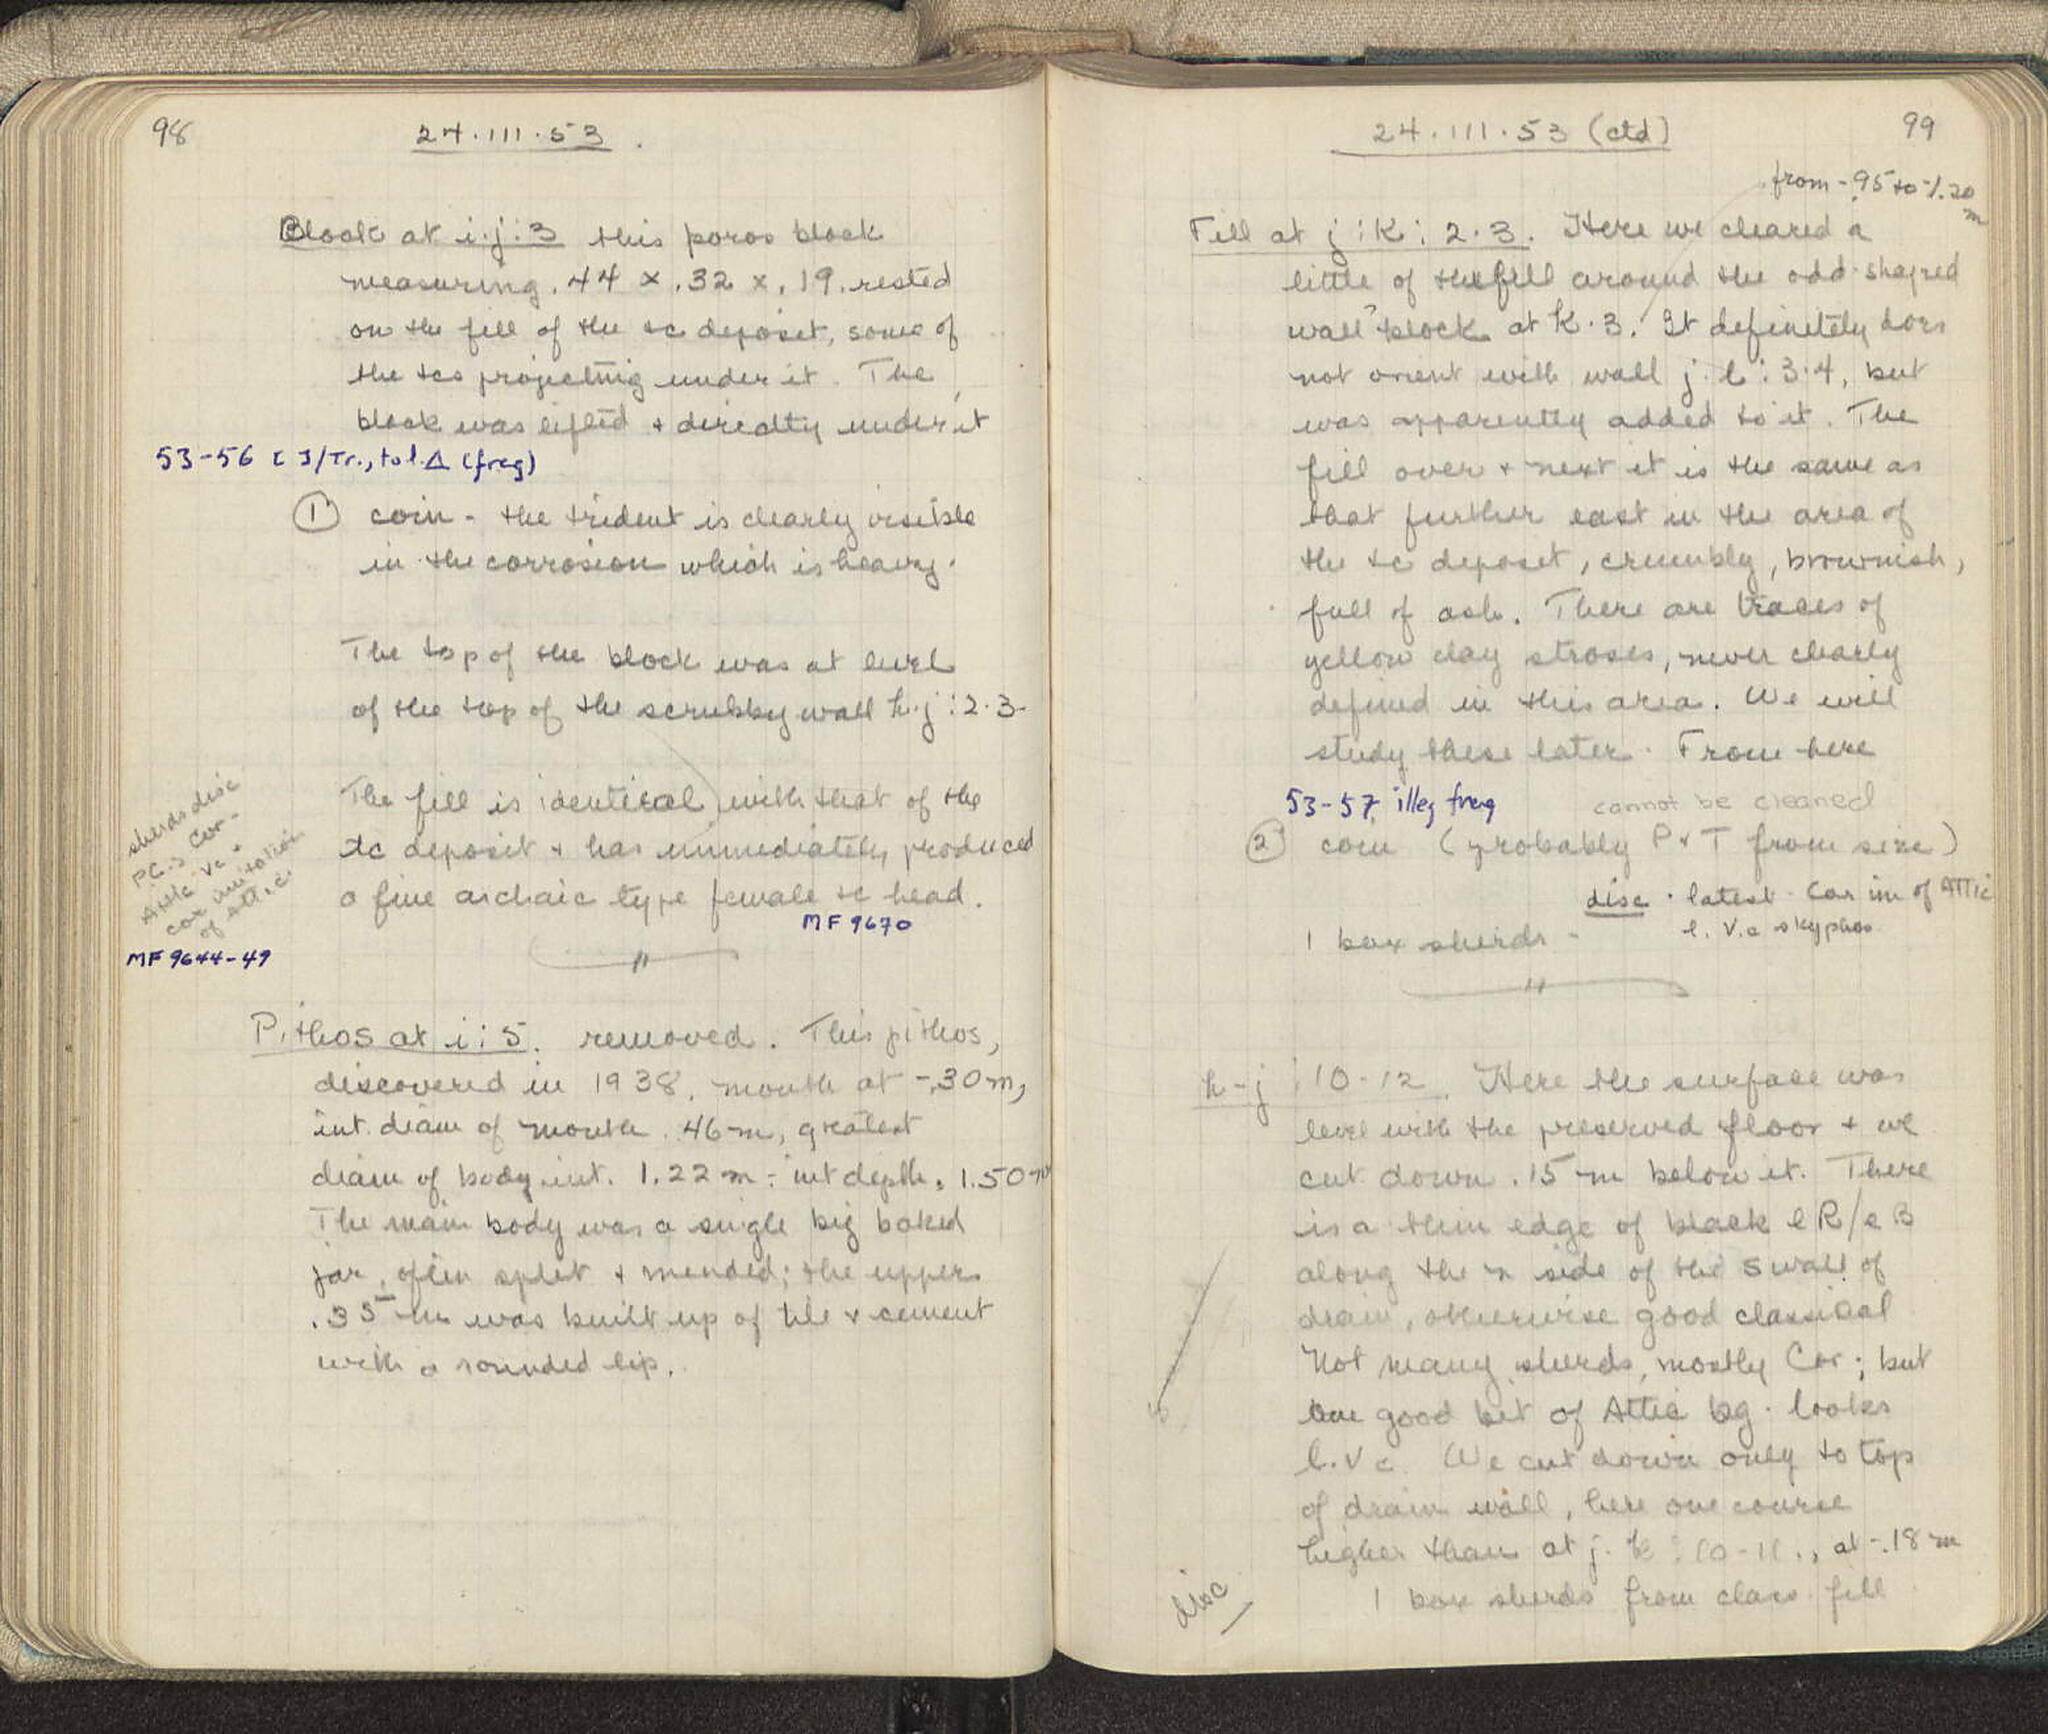 98
24.III.53.
Block at i.j:3 this poros block
measuring .44 x .32 x .19. rested
on the fill of the tc deposit, some of
the tcs projecting under it. The
block was lifted + directly under it
53-56 [ J/Tr., to l. Δ (frag)
① coin - the trident is clearly visible
in the corrosion which is heavy.
The top of the block was at level
of the top of the scrubby wall h.j:2.3-
The fill is identical with that of the
tc deposit + has immediately produced
a fine archaic type female tc head.
MF 9670
sherds disc
P.G. > Cor-
Attic vc +
cor imitation
of Attic
MF 9644-49
"
Pithos at i:5. removed. This pithos,
discovered in 1938, mouth at -.30m,
int. diam of mouth .46m, greatest
diam of body int. 1.22 m; int depth, 1.50m
The main body was a single big baked
jar, often split + mended; the upper
.35 m was built up of tile + cement
with a rounded lip.
24.III.53 (ctd)
99
from -.95 to -1.20
m
Fill at j:K:2.3. Here we cleared a
little of the fill around the odd-shaped
wall block at K.3. It definitely does
not orient with wall j.l:3.4, but
was apparently added to it. The
fill over + next it is the same as
that further east in the area of
the tc deposit, crumbly, brownish,
full of ash. There are traces of
yellow clay stroses, never clearly
defined in this area. We will
study these later. From here
53-57 illeg frag
cannot be cleaned
② coin (probably P + T from size)
disc. latest Cor im of Attic
l. V.c skyphos
1 box sherds -
"
h-j:10-12. Here the surface was
level with the preserved floor + we
cut down .15 m below it. There
is a thin edge of black l R/e B
along the n side of the S wall of
drain, otherwise good classical
Not many sherds, mostly Cor; but
one good bit of Attic bg. looks
l.V c. We cut down only to top
of drain wall, here one course
higher than at j.k:10-11., at -.18 m
1 box sherds from class. fill
disc